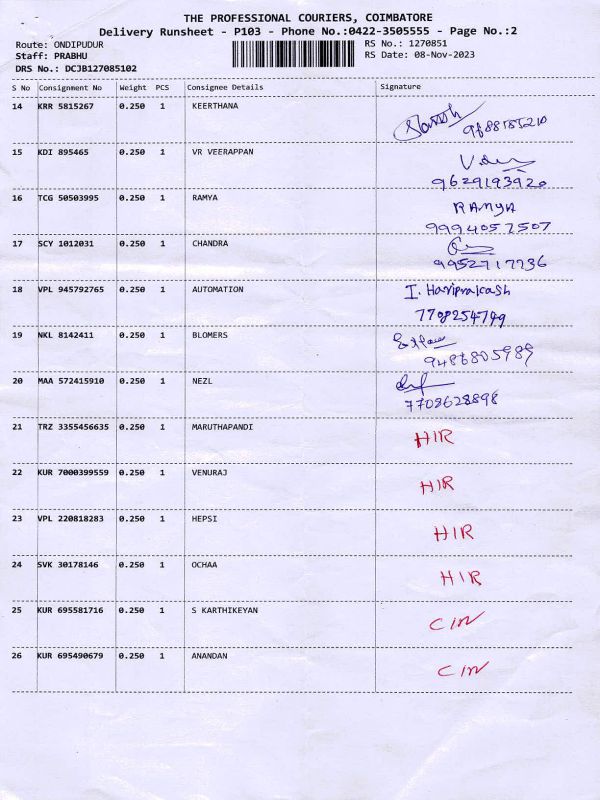 THE PROFESSIONAL COURIERS, COIMBATORE
Delivery Runsheet - P103 - Phone No.:0422-3505555 - Page No.:2
Route: ONDIPUDUR RS No.: 1270851
Staff: PRABHU RS Date: 08-Nov-2023
DRS No.: DCJB127085102
S No Consignment No Weight PCS Consignee Details Signature
14 KRR 5815267 0.250 1 KEERTHANA
15 KDI 895465 0.250 1 VR VEERAPPAN
9629193920
16 TCG 50503995 0.250 1 RAMYA RAMYA
9994057507
17 SCY 1012031 0.250 1 CHANDRA
9952717736
18 VPL 945792765 0.250 1 AUTOMATION I. Hariprakash
7708254749
19 NKL 8142411 0.250 1 BLOMERS
9486805989
20 MAA 572415910 0.250 1 NEZL
7708628898
21 TRZ 3355456635 0.250 1 MARUTHAPANDI HIR
22 KUR 7000399559 0.250 1 VENURAJ HIR
23 VPL 220818283 0.250 1 HEPSI HIR
24 SVK 30178146 0.250 1 OCHAA HIR
25 KUR 695581716 0.250 1 S KARTHIKEYAN CIN
26 KUR 695490679 0.250 1 ANANDAN CIN